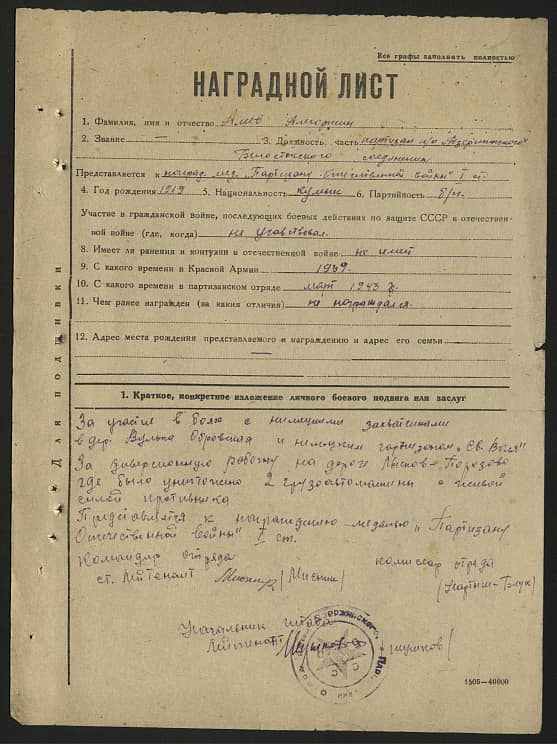 Все графы заполнять полностью
НАГРАДНОЙ ЛИСТ
1. Фамилия, имя и отчество Алев
2. Звание — 3. Должность, часть партизан п/о Дзержинского
Белостокского соединения
Представляется к наград. мед. "Партизану Отечественной войны" I ст.
4. Год рождения 1919 5. Национальность кумык 6. Партийность б/п.
Участие в гражданской войне, последующих боевых действиях по защите СССР в отечествен-
ной войне (где, когда) не участвовал.
8. Имеет ли ранения и контузии в отечественной войне не имеет
9. С какого времени в Красной Армии 1939
10. С какого времени в партизанском отряде март 1943 г.
11. Чем ранее награжден (за какия отличия) не награждался.
12. Адрес места рождения представляемого к награждению и адрес его семьи
—
Для подшивки
1. Краткое, конкретное изложение личного боевого подвига или заслуг
За участие в бою с немецкими захватчиками
в дер. Вулька Обровская и немецким гарнизоном "Св. Воля"
За диверсионную работу на дороге Лысков-Порозово
где было уничтожено 2 грузоавтомашины с живой
силой противника
Представляется к награждению медалью "Партизану
Отечественной войны" I ст.
Командир отряда
комиссар отряда
ст. лейтенант
Начальник штаба
Лейтенант
1505—40000